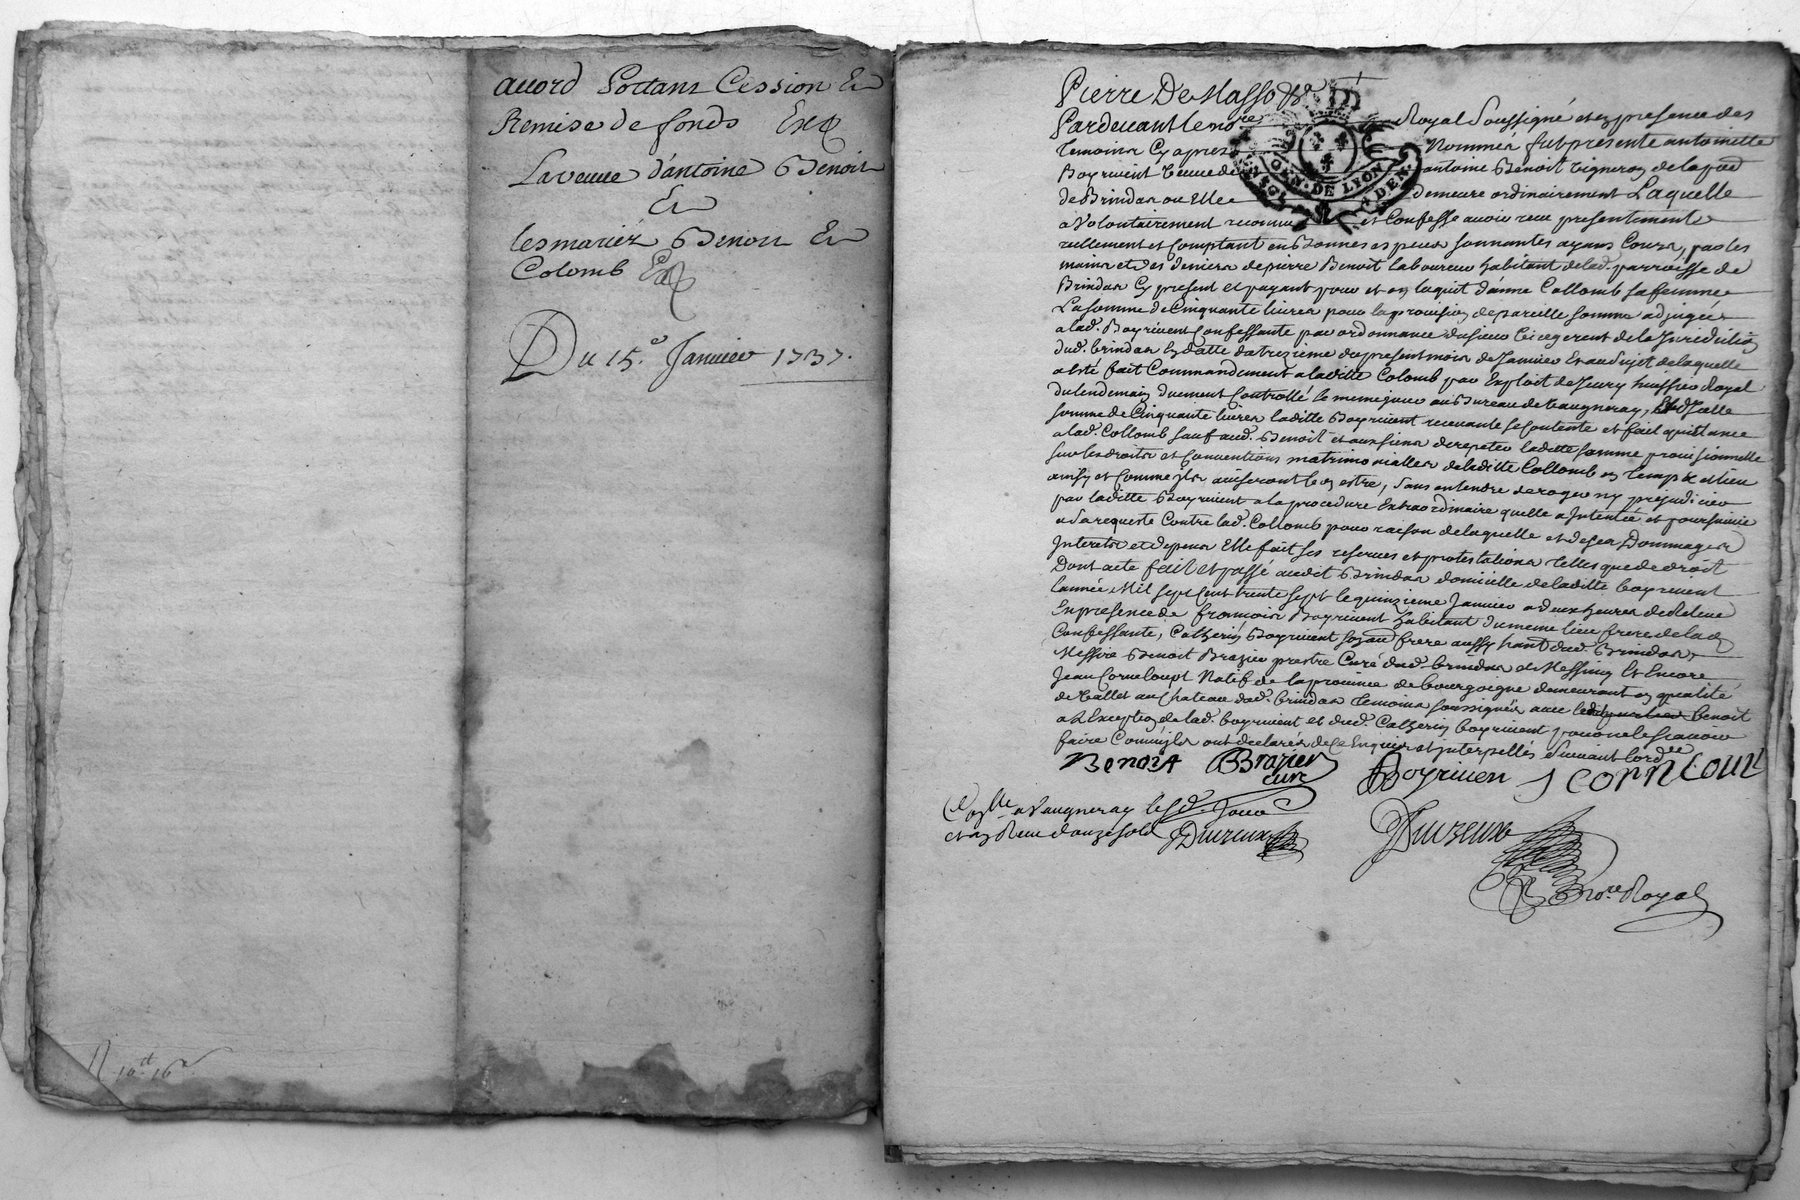 accord Portant Cession Et
Remise de fonds Entre
La veuve d'antoine Benoit
Et
les mariéz Benoit Et
Colomb
Du 15.e Janvier 1737.
Pierre De Masso
Pardevant le no.re Royal Soussigné et en presence des
temoins Cy apres Nommés fut presente antoinette
Boyrivent veuve de antoine Benoit vigneron de la par.sse
de Brindas ou Elle demeure ordinairement Laquelle
a Volontairement reconnu et Confesse avoir reçu presentement
reellement et Comptant en Bonnes especes sonnantes ayans Cours, par les
mains et des deniers de pierre Benoit laboureur habitant de lad. parroisse de
Brindas Cy present et payant pour et en l'aquit d'anne Collomb sa femme
La somme de Cinquante livres pour la provision de pareille somme adjugée
a lad. Boyrivent Confessante par ordonnance du sieur vicegerent de la Juridiction
dud. brindas En datte du treizieme du present mois de Janvier Et au sujet de laquelle
a Esté fait Commandement a laditte Colomb par Exploit de Jeury huissier Royal
du lendemain duement Controllé le meme jour au Bureau de vaugneray, de laquelle
somme de Cinquante livres laditte Boyrivent recevante se Contente et fait quittance
a lad. Collomb sauf aud. Benoit et aux siens de repeter laditte somme provisionnelle
sur les droits et Conventions matrimonialles de laditte Collomb en temps et lieu
ainsy et Comme ils aviseront bon estre, sans entendre deroger ny prejudicier
par laditte Boyrivent a la procedure Extraordinaire quelle a Intentée et poursuivie
a Sa requeste Contre lad. Collomb pour raison de laquelle et de ses Dommages
Interets et depens Elle fait ses reserves et protestations telles que de droit
Dont acte fait et passé audit Brindas domicille de laditte boyrivent
l'année Mil sept Cent trente sept le quinzieme Janvier a deux heures de relevée
En presence de françois Boyrivent habitant du meme lieu frere de lad.
Confessante, Catherin Boyrivent son frere aussy habitant dud. Brindas,
Messire Benoit Brazier prestre Curé dud. brindas et Messimy Et Encore
Jean Corneloupt Natif de la province de bourgoigne demeurant en qualité
de vallet au Chateau dud. brindas temoins soussignés avec led. Benoit
a L'Exception de lad. boyrivent et dud. Catherin boyrivent pour ne le sçavoir
faire Comme ils ont declarés de Ce Enquis et interpellés suivant l'ord.ce
Benoit Brazier Boyriven J corneloup
curé
Con.llé a Vaugneray led. Jour
et an Reçu douze sols Duvreux
Duvreux
No.re Royal
R 10tt 16s